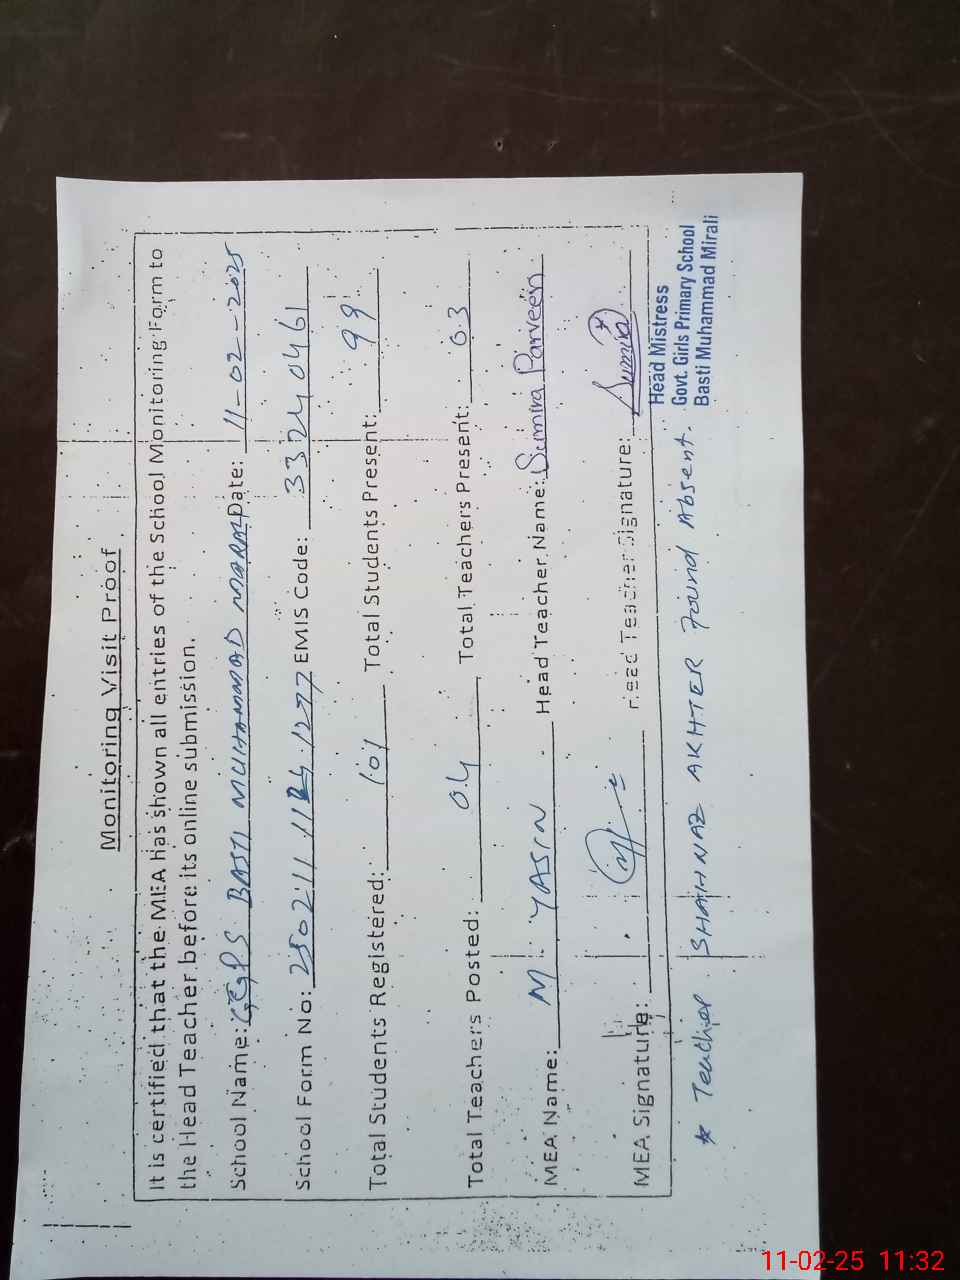 Monitoring Visit Proof
It is certified that the MEA has shown all entries of the School Monitoring Form to
the Head Teacher before its online submission.
School Name: GGPS BASTI MUHAMMAD Date: 11-02-2025
School Form No: EMIS Code: 33240461
Total Students Registered: 101 Total Students Present: 99
Total Teachers Posted: 04 Total Teachers Present: 03
MEA Name: M. YASIN Head Teacher Name: Sumira Parveen
MEA Signature: Head Teacher Signature: Sumira
Head Mistress
Govt. Girls Primary School
Basti Muhammad Mirali
* Teacher SHAHNAZ AKHTER Found Absent.
11-02-25 11:32